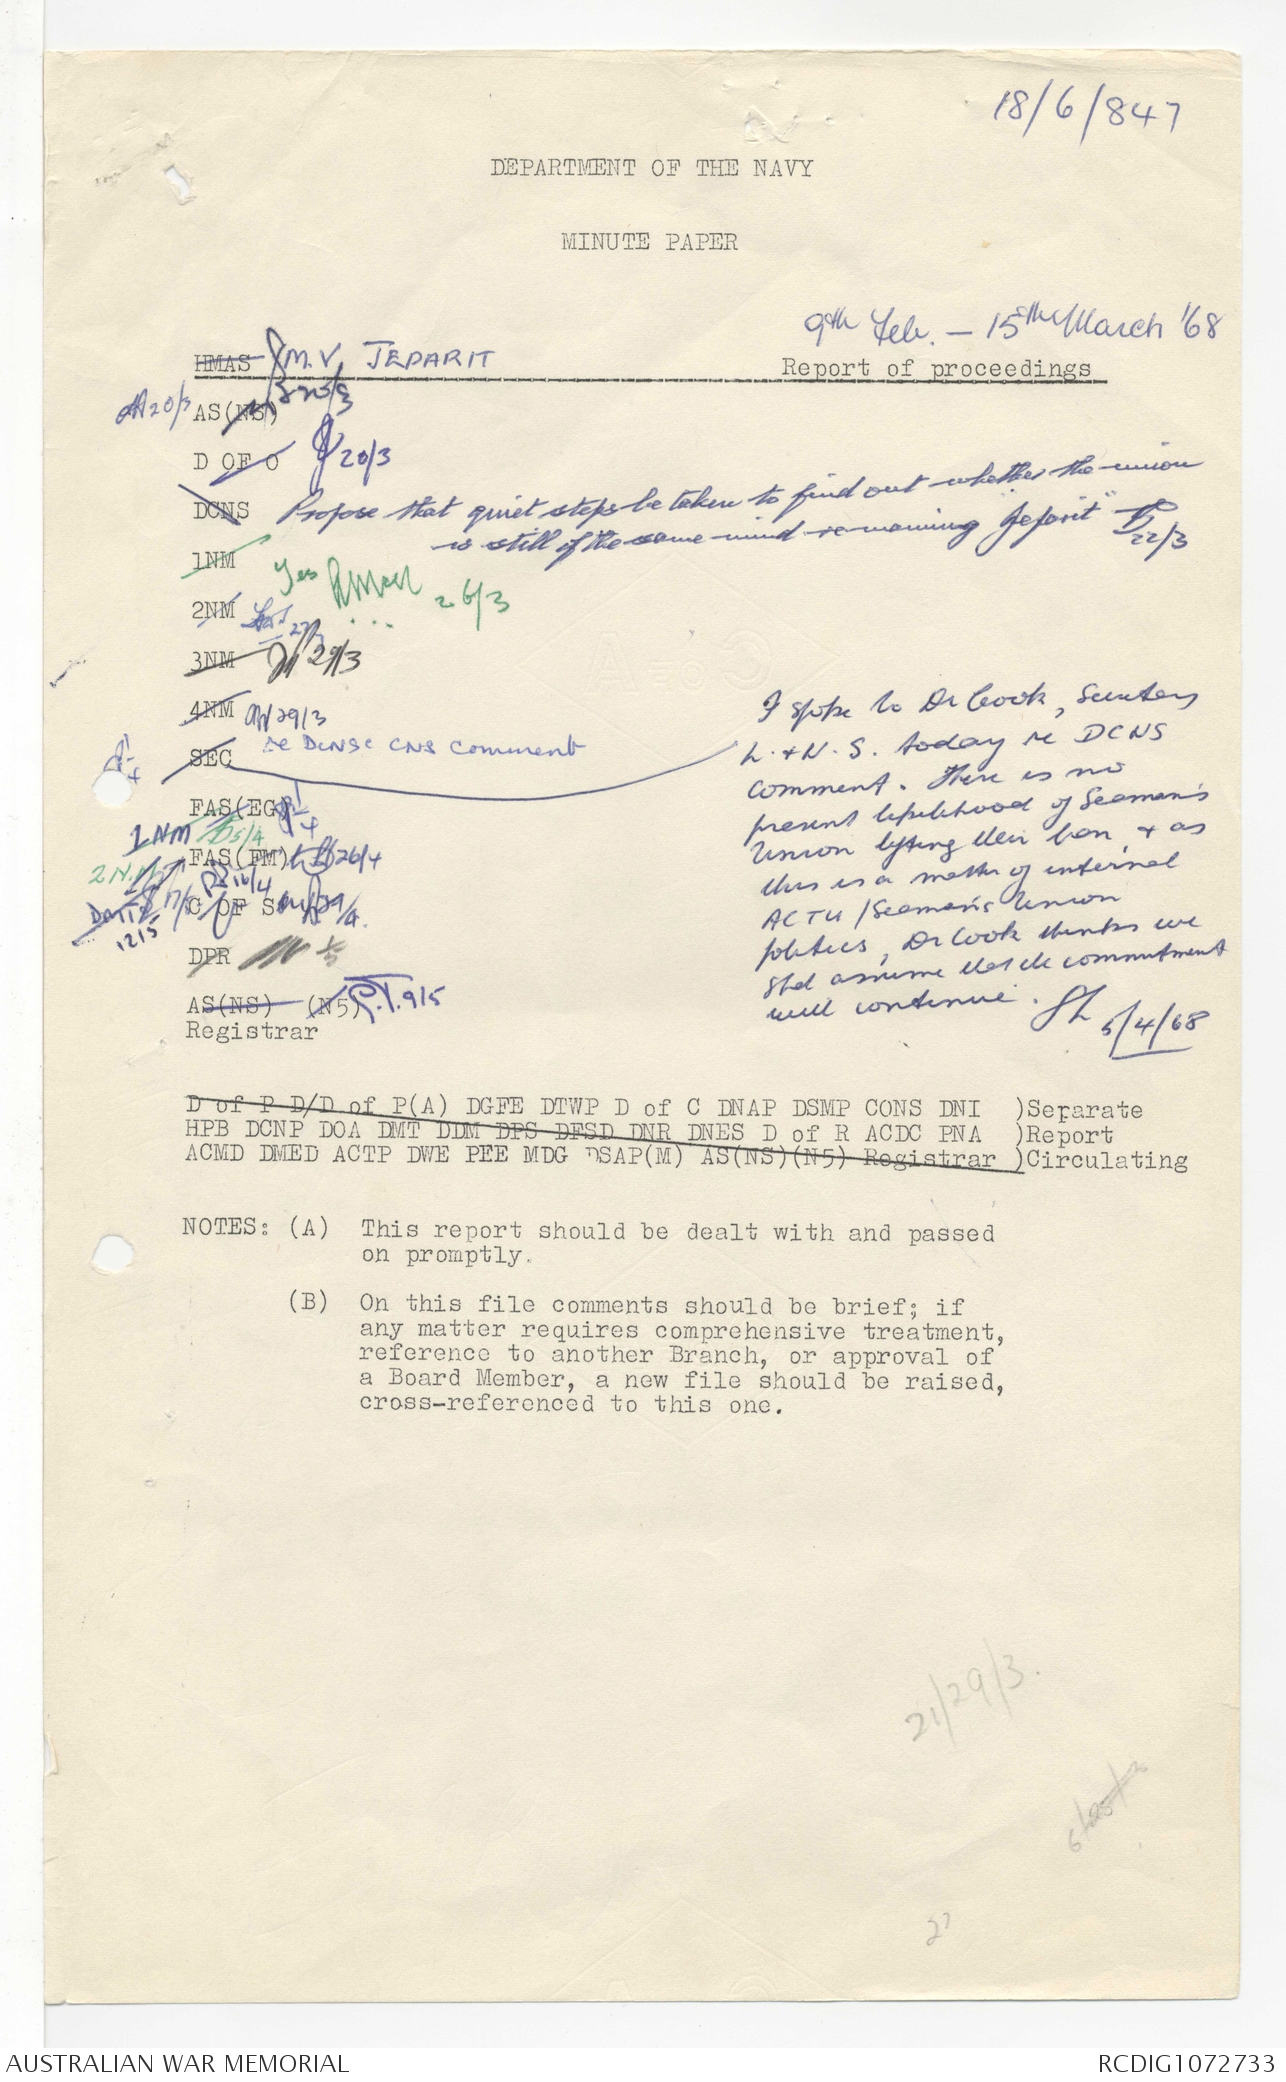 18/6/847
DEPARTMENT OF THE NAVY
MINUTE PAPER
9th Feb. - 15th March '68
HMAS M.V. JEPARIT
Report of proceedings
20/3 AS(NS)
D OF O 20/3
DCNS Propose that quiet steps be taken to find out whether the union
is still of the same mind re manning "Jeparit" 22/3
1NM
Yes 26/3
2NM
3NM 29/3
4NM 29/3
SEC re DCNS & CNS comment
I spoke to Dr Cook, Secretary
L. & N. S. today re DCNS
comment. There is no
present likelihood of Seamen's
Union lifting their ban, & as
this is a matter of internal
ACTU/Seamen's Union
politics, Dr Cook thinks we
shd assume that the commitment
will continue.
5/4/68
FAS(EG)
1NM 5/4
FAS(FM) 26/4
2N.M.
16/4
C OF S
12/5
DPR
AS(NS) (N5) 9/5
Registrar
D of P D/D of P(A) DGFE DTWP D of C DNAP DSMP CONS DNI )Separate
HPB DCNP DOA DMT DDM DPS DFSD DNR DNES D of R ACDC PNA )Report
ACMD DMED ACTP DWE PEE MDG DSAP(M) AS(NS)(N5) Registrar )Circulating
NOTES: (A) This report should be dealt with and passed
on promptly.
(B) On this file comments should be brief; if
any matter requires comprehensive treatment,
reference to another Branch, or approval of
a Board Member, a new file should be raised,
cross-referenced to this one.
21/29/3.
27
AUSTRALIAN WAR MEMORIAL
RCDIG1072733